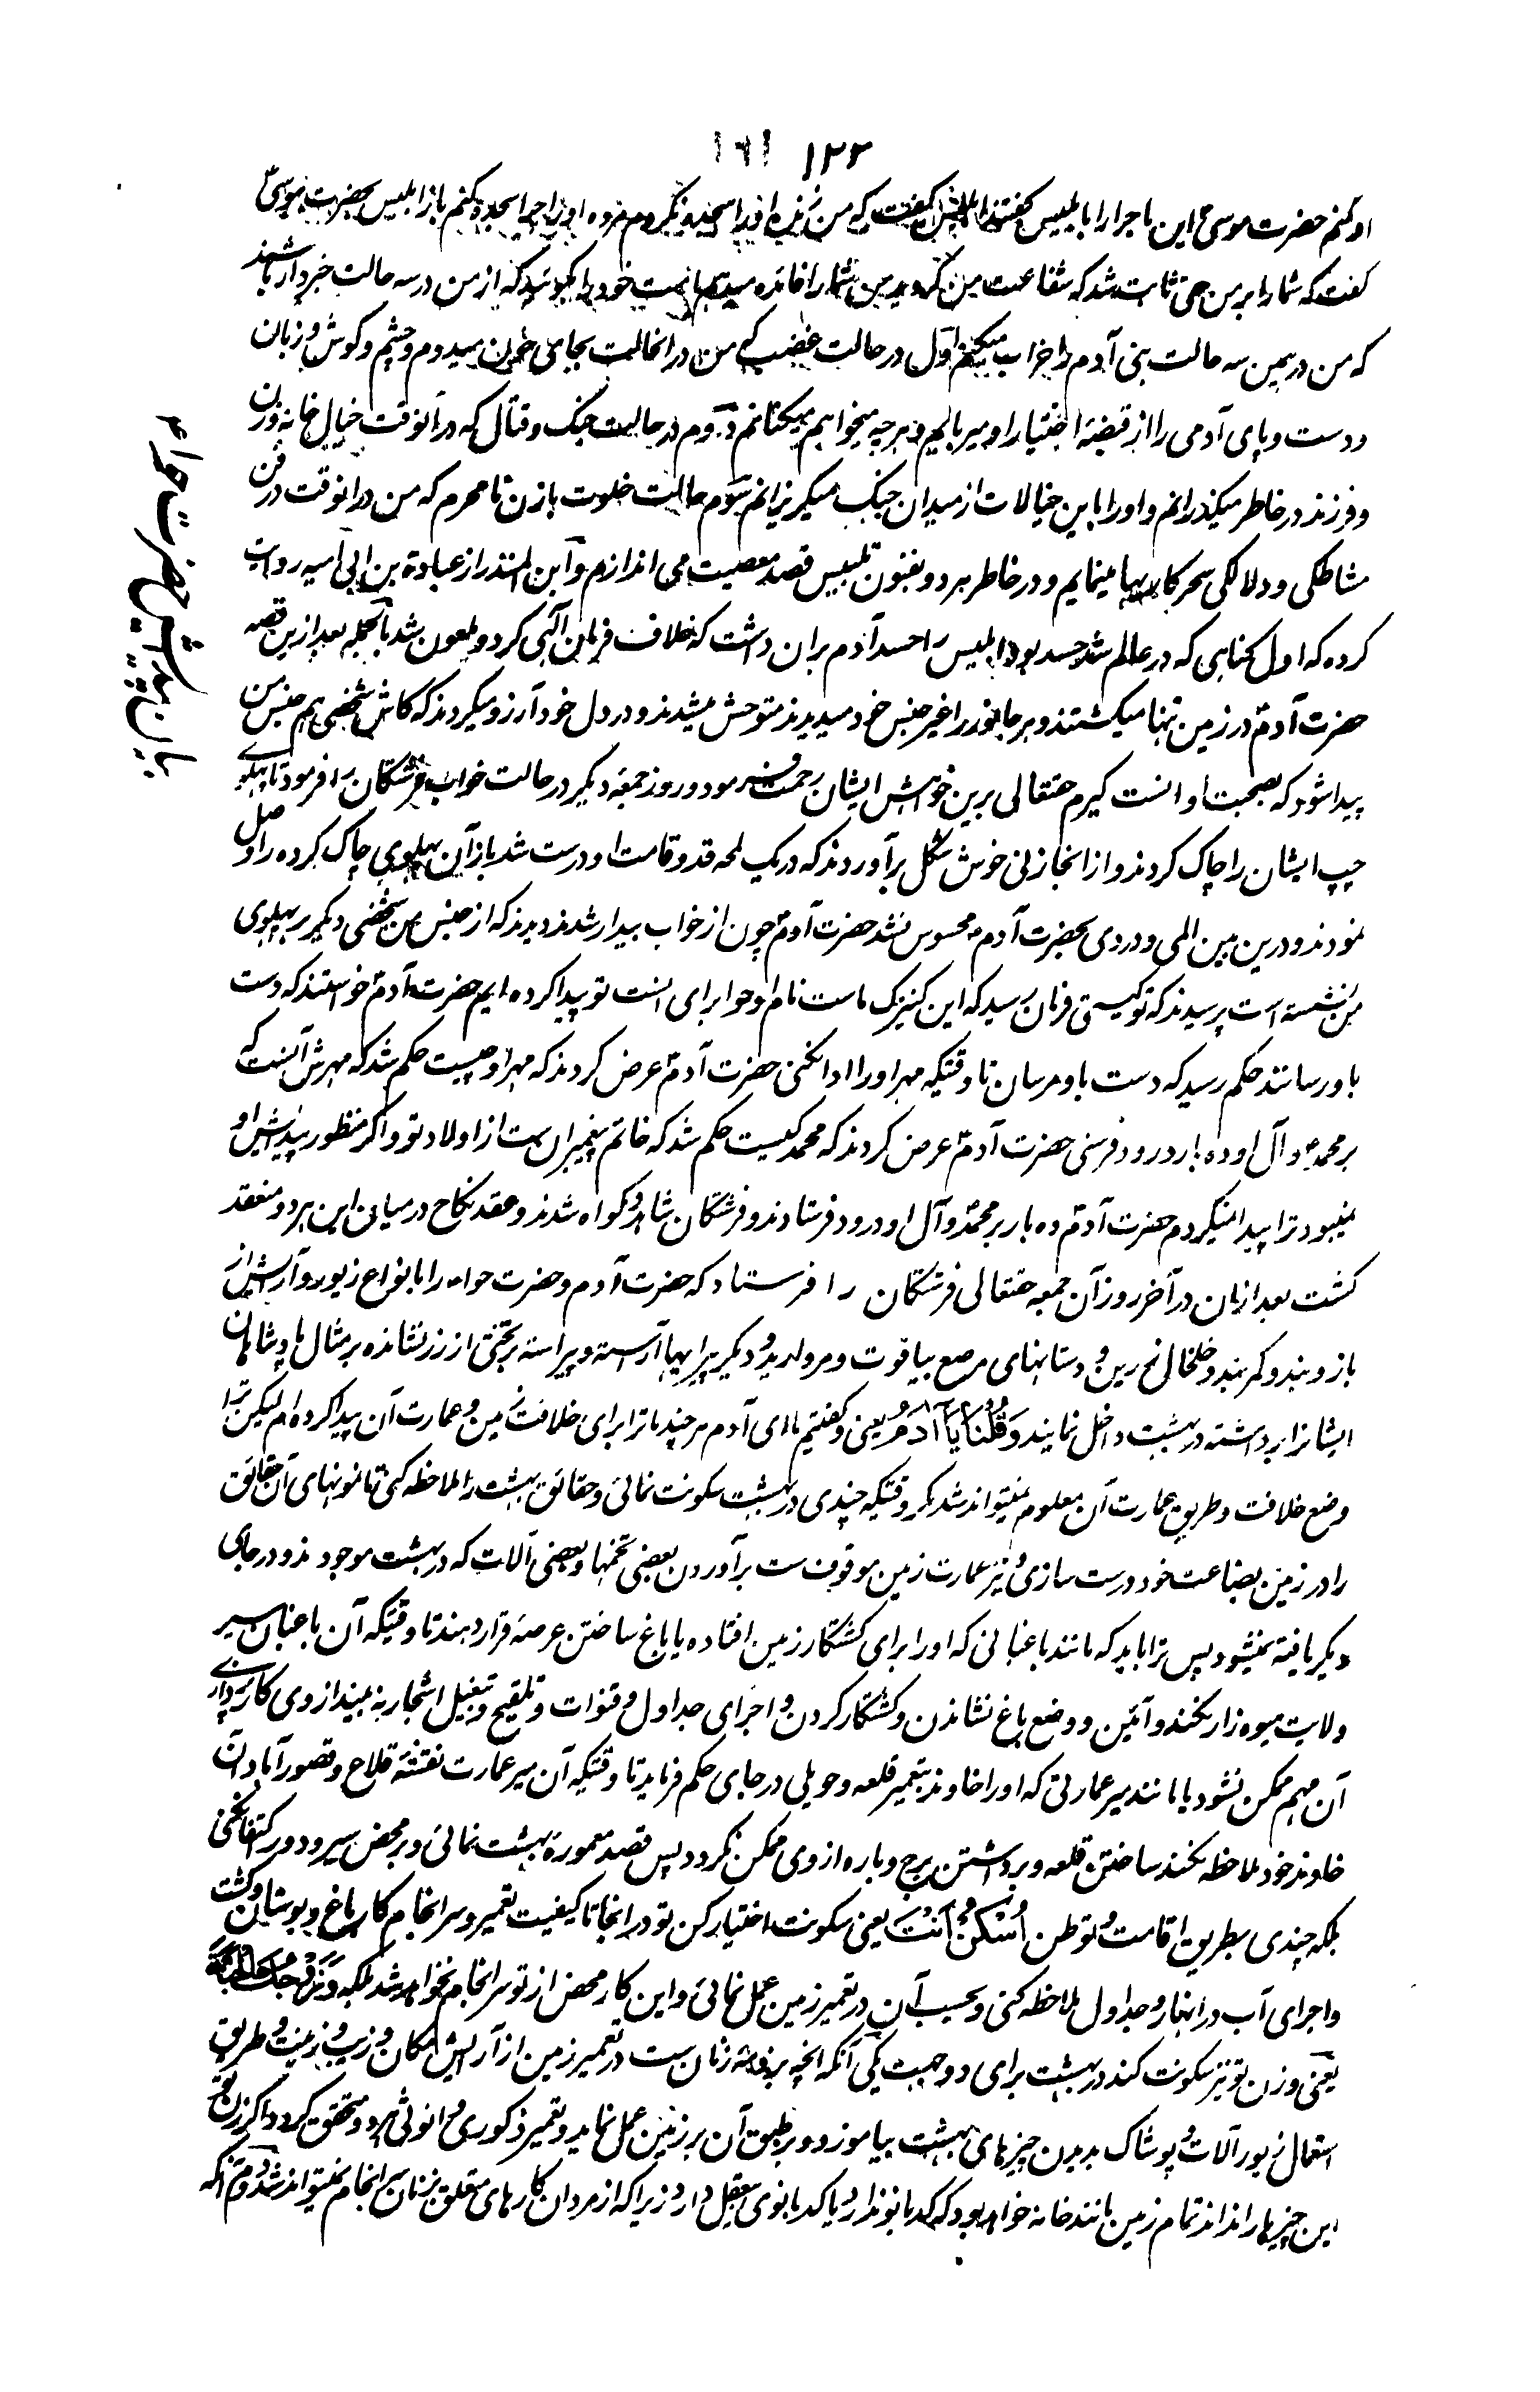 ۱۲۲ ۱۶۱
او کنم حضرت موسیٰ این ماجرا را با ابلیس گفتند ابلیس گفت که من زنده او را سجده نکردم مرده او را چرا سجده کنم باز ابلیس بحضرت موسیٰ
گفت که شما را بر من حق ثابت شد که شفاعت من کردید من شما را فائده میدهم امت خود را بگوئید که از من در سه حالت خبردار باشند
که من در همین سه حالت بنی آدم را خراب میکنم اول در حالت غضب که من در انحالت بجای خون میدوم و چشم و گوش و زبان
و دست و پای آدمی را از قبضهٔ اختیار او میربایم و هرچه میخواهم میکنانم دوم در حالت جنگ و قتال که در آنوقت خیال خانه و زن
و فرزند در خاطر میگذرانم و او را باین خیالات از میدان جنگ میگریزانم سوم حالت خلوت با زن نامحرم که من در انوقت در فن
مشاطگی و دلالگی سحرکاریها مینمایم و در خاطر هر دو بفنون تلبیس قصد معصیت می اندازم و ابن المنذر از عبادة بن ابی امیه روایت
کرده که اول گناهی که در عالم شد حسد بود ابلیس را حسد آدم بران داشت که خلاف فرمان آلهی کرد و ملعون شد بالجمله بعد ازین قصه
حضرت آدم در زمین تنها میگشتند و هر جانور را غیر جنس خود میدیدند متوحش میشدند و در دل خود آرزو میکردند که کاش شخصی هم جنس من
پیدا شود که بصحبت او انست گیرم حقتعالی برین خواهش ایشان رحمت فرمود و روز جمعهٔ دیگر در حالت خواب فرشتگان را فرمود تا پهلوی
چپ ایشان را چاک کردند و از انجا زنی خوش شکل برآوردند که در یک لمحه قد و قامت او درست شد باز آن پهلوی چاک کرده را وصل
نمودند و درین بین المی و دردی بحضرت آدم محسوس نشد حضرت آدم چون از خواب بیدار شدند دیدند که از جنس من شخصی دیگر بر پهلوی
من نشسته است پرسیدند که تو کیستی فرمان رسید که این کنیزک ماست نام او حوا برای انست تو پیدا کرده ایم حضرت آدم خواستند که دست
باو رسانند حکم رسید که دست باو مرسان تا وقتیکه مهر او را ادا نکنی حضرت آدم عرض کردند که مهر او چیست حکم شد که مهرش آنست که
بر محمد و آل او ده بار درود فرستی حضرت آدم عرض کردند که محمد کیست حکم شد که خاتم پیغمبران ست از اولاد تو و اگر منظور پیدایش او
نمیبود ترا پیدا نمیکردم حضرت آدم ده بار بر محمد و آل او درود فرستادند و فرشتگان شاهد و گواه شدند و عقد نکاح در میان این هر دو منعقد
گشت بعد ازان در آخر روز آن جمعه حقتعالی فرشتگان را فرستاد که حضرت آدم و حضرت حواء را بانواع زیور و آرایش از
بازوبند و کمربند و خلخال زرین و دستانهای مرصع بیاقوت و مروارید و دیگر پیرایها آراسته و پیراسته بر تختی از زر نشانده بر مثال پادشاهان
ایشانرا برداشته در بهشت داخل نمایند وَقُلْنَا يَآ آدَمُ یعنی و گفتیم ما ای آدم هر چند ما ترا برای خلافت زمین و عمارت آن پیدا کرده ام لیکن ترا
وضع خلافت و طریق عمارت آن معلوم نمیتواند شد مگر وقتیکه چندی در بهشت سکونت نمائی و حقائق بهشت را ملاحظه کنی تا نمونهای آن حقائق
را در زمین بصناعت خود درست سازی و نیز عمارت زمین موقوف ست برآوردن بعضی تخمها و بعضی آلات که در بهشت موجودند و در جای
دیگر یافته نمیشود پس ترا باید که مانند باغبانی که او را برای کشتکار زمین افتاده یا باغ ساختن عرصه قرار دهند تا وقتیکه آن باغبان سیر
ولایت میوه زار نکند و آئین و وضع باغ نشاندن و کشتکار کردن و اجرای جداول و قنوات و تلقیح و تنبیل اشجار نه بیند از وی کارپردازی
آن مهم ممکن نشود یا مانند میر عمارتی که او را خاوند بتعمیر قلعه و حویلی در جای حکم فرماید تا وقتیکه آن میر عمارت نقشهٔ قلاع و قصور آبادان
خاوند خود ملاحظه نکند ساختن قلعه و برداشتن برج و باره از وی ممکن نگردد پس قصد معمورهٔ بهشت نمائی و بر محض سیر و دور اکتفا نکنی
بلکه چندی بطریق اقامت و توطن اُسْكُنْ اَنْتَ یعنی سکونت اختیار کن تو در انجا تا کیفیت تعمیر و سرانجام کار باغ و بوستان و کشت
واجرای آب در انهار و جداول ملاحظه کنی و بحسب آن در تعمیر زمین عمل نمائی و این کار محض از تو سرانجام نخواهد شد بلکه وَزَوْجُكَ الْجَنَّةَ
یعنی و زن تو نیز سکونت کند در بهشت برای دو وجهت یکی آنکه انچه بر ذمه زنان ست در تعمیر زمین از آرایش مکان و زیب و زینت و طریق
استعمال زیور آلات و پوشاک بدیدن چیزهای بهشت بیاموزد و بر طبق آن بر زمین عمل نماید و تعمیر ذکوری و انوثی هر دو متحقق گردد اگر زن تو
این چیزها را نداند تمام زمین مانند خانه خواهد بود که کدبانو ندارد یا کدبانوی بیعقل دارد زیرا که از مردان کارهای متعلق بزنان سرانجام نمیتواند شد دوم آنکه
بیان پیدایش حضرت حواء